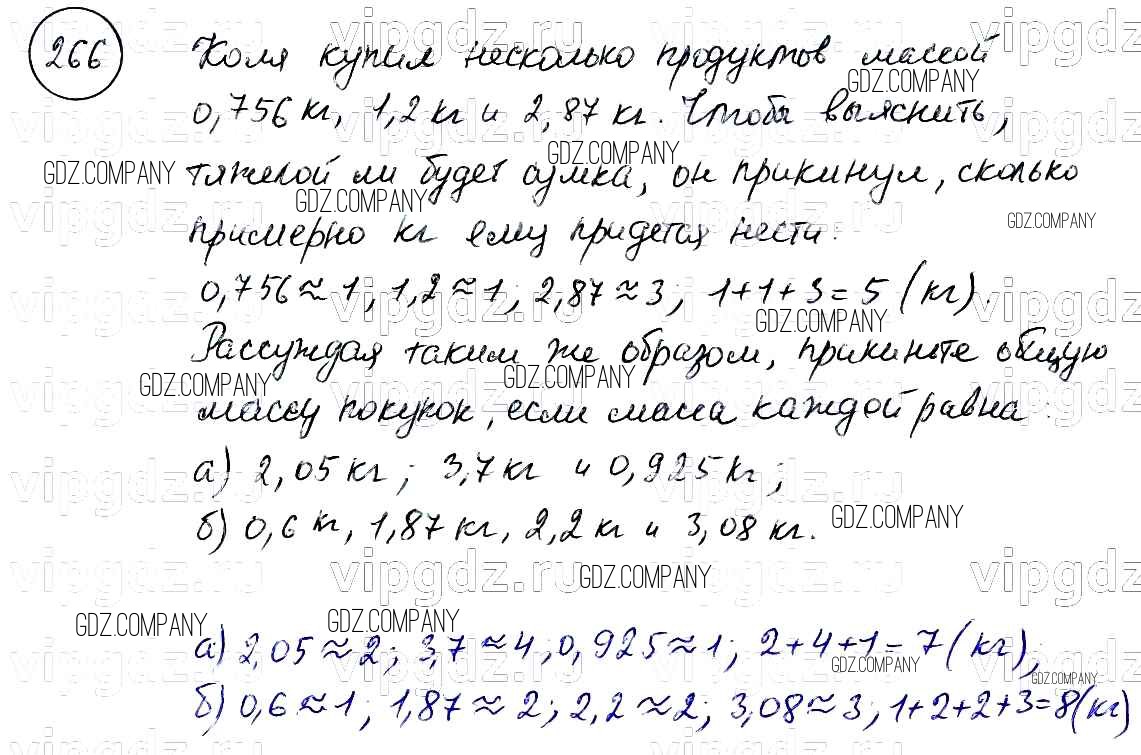 266 Коля купил несколько продуктов массой
0,756 кг, 1,2 кг и 2,87 кг. Чтобы выяснить,
тяжелой ли будет сумка, он прикинул, сколько
примерно кг ему придется нести:
0,756 ≈ 1, 1,2 ≈ 1; 2,87 ≈ 3; 1+1+3=5 (кг).
Рассуждая таким же образом, прикиньте общую
массу покупок, если масса каждой равна:
а) 2,05 кг; 3,7 кг и 0,925 кг;
б) 0,6 кг, 1,87 кг, 2,2 кг и 3,08 кг.
а) 2,05 ≈ 2; 3,7 ≈ 4; 0,925 ≈ 1; 2+4+1=7 (кг);
б) 0,6 ≈ 1; 1,87 ≈ 2; 2,2 ≈ 2; 3,08 ≈ 3; 1+2+2+3=8 (кг)
vipgdz.ru
GDZ.COMPANY